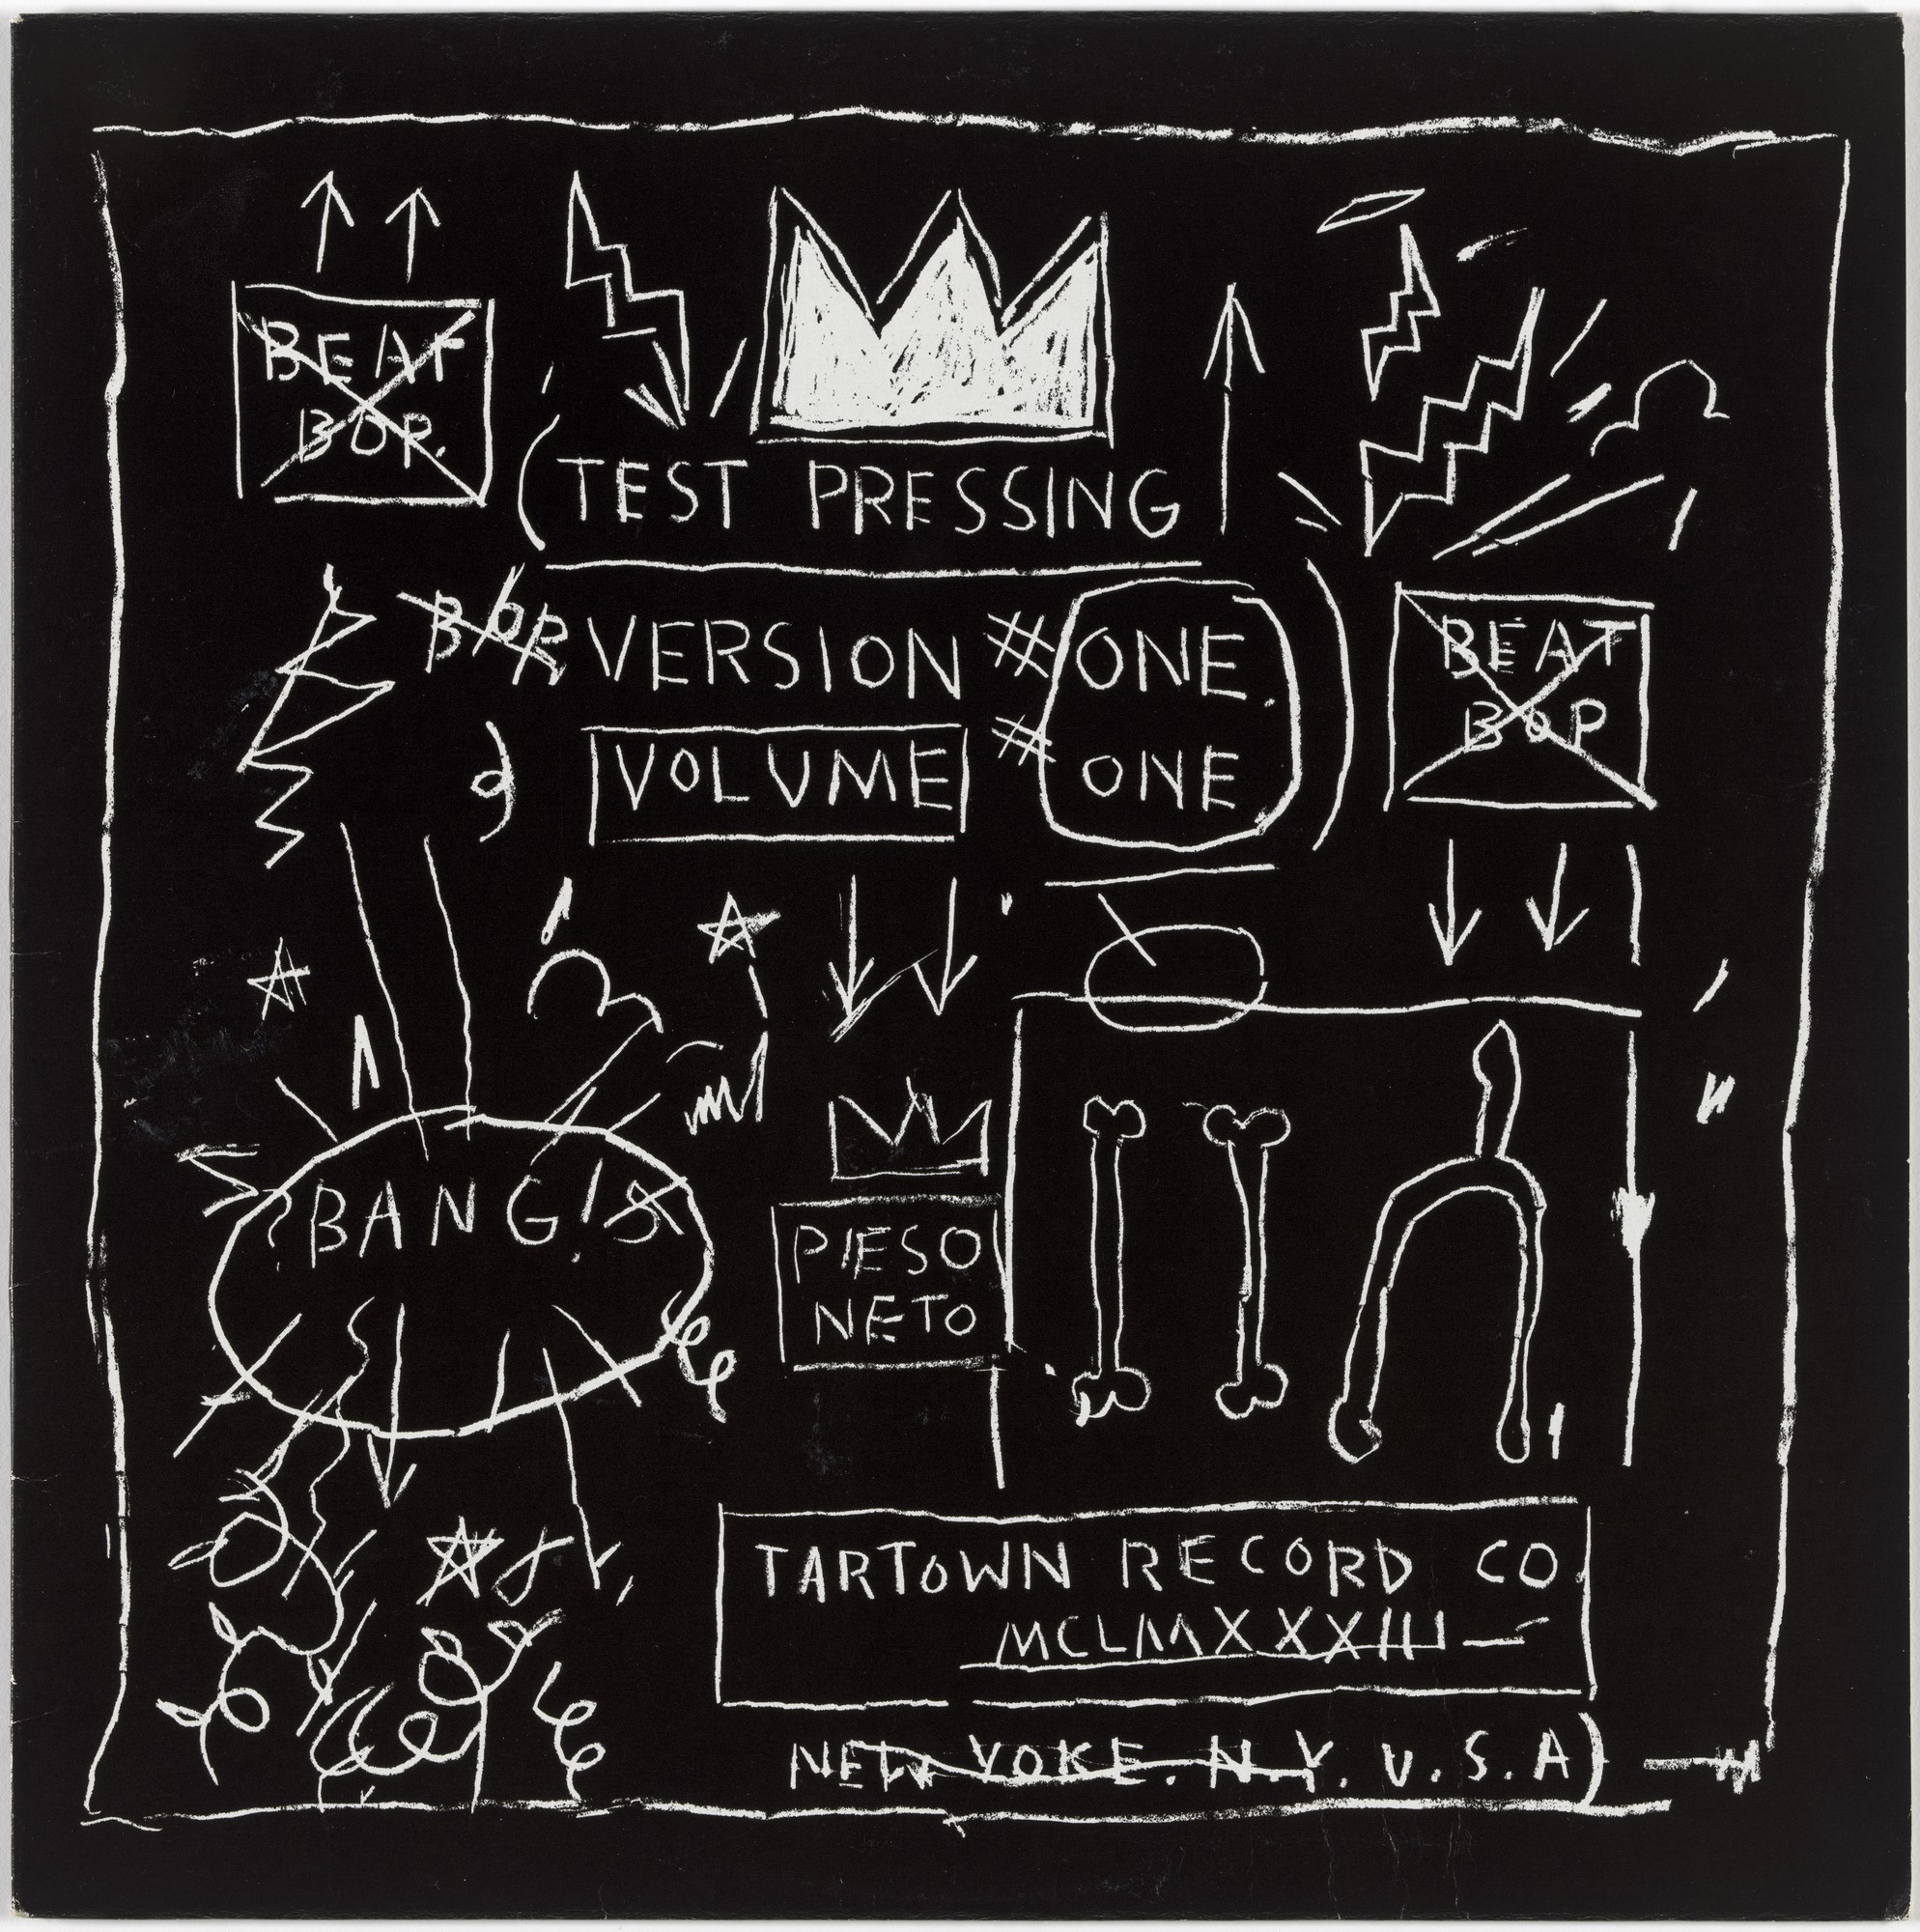 BEAT
BOP.
(TEST PRESSING
BOP VERSION # ONE.
VOLUME # ONE
)
BEAT
BOP
?BANG!
PIESO
NETO
TARTOWN RECORD CO
MCLMXXXIII
NEW YOKE. N.Y. U.S.A)